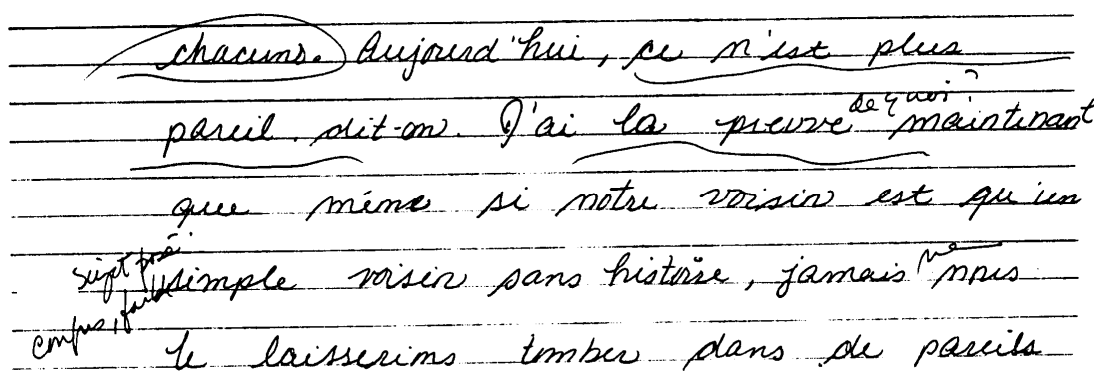 chacuns. Aujourd'hui, ce n'est plus
pareil. dit-on. J'ai la preuve de quoi? maintenant
que même si notre voisin est qu'un
sujet posé:
simple voisin sans histoire, jamais ne nous
confus,
le laisserions tomber dans de pareils